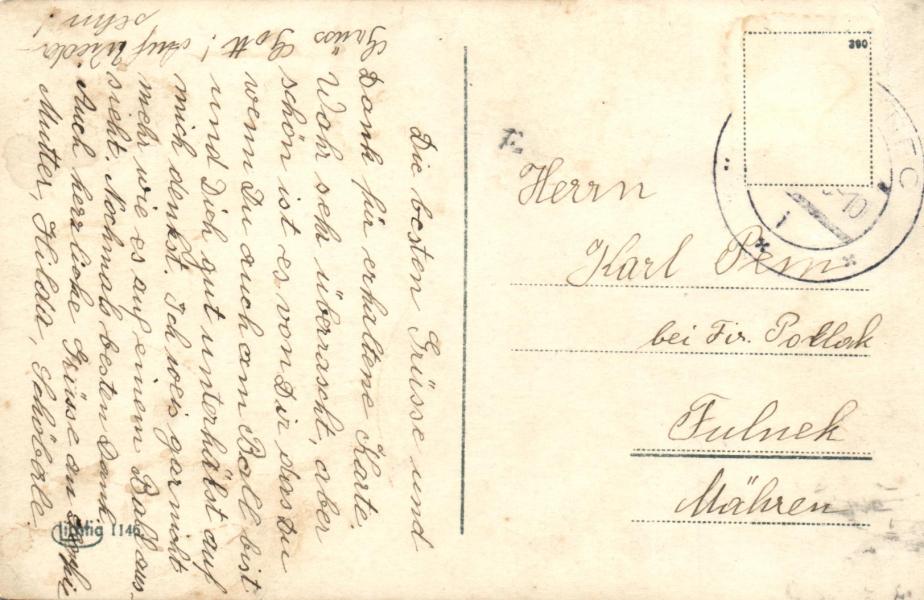 Die besten Grüsse und
Dank für erhaltene Karte
Wahr sehr überrascht, aber
schön ist es von Dir das Du
wenn Du auch am Ball bist
und Dich gut unterhälst auf
mich denkst. Ich weis gar nicht
mehr wie es auf einem Ball aus-
sieht. Nochmals besten Dank
Auch herzliche Grüsse an
Mutter, Hilda, Schöberle
Grüss Gott! Auf Wieder-
sehn!
Herrn
Karl
bei Fir. Pollak
Fulnek
Mähren
Lichtig 1146
390